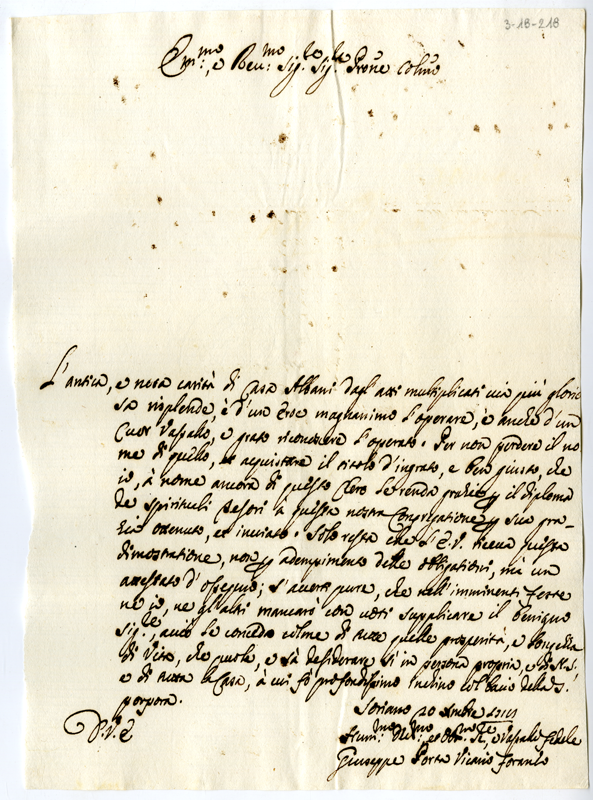 3-18-218
Em:mo, e Reu:mo Sig:re Sig:re Prone Colmo
L'antica, e nota carità di Casa Albani dagl'atti multiplicati uia più glorio
sa risplende, è d'un Eroe magnanimo l'operare, è anche d'un
Cuor Vassallo, e grato riconoscere l'operato. Per non perdere il no
me di quello, et acquistare il titolo d'ingrato, e ben giusto, che
io, à nome ancora di questo Clero le renda grazie p il diploma
de spirituali tesori à questa nostra Congregatione p sua gra_
zia ottenuto, et inuiato. Solo resta che l'E.V. riceua questa
dimostratione, non p adempimento delle obligationi, mà un
attestato d'ossequio; s'accerti pure, che nell'imminenti feste
ne io, ne gl'altri mancarò con uoti supplicare il benigno
Sig:re, acciò le conceda colme di tutte quelle prosperità, e longhezza
di Vita, che puole, e sà desiderare si in persona propria, e di N.S.
e di tutta la Casa, à cui fò profondissimo inchino col bacio della S.
porpora.
Soriano 20 Xmbre
D.V.E
Hum:mo Deu:mo et Obb:mo Se:re, e Vassallo fedele
Giuseppe Porta Vicario foraneo